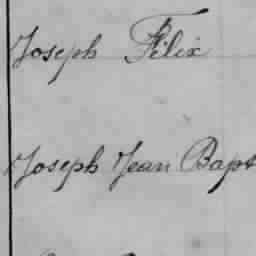 Joseph Félix
Joseph Jean Bapt